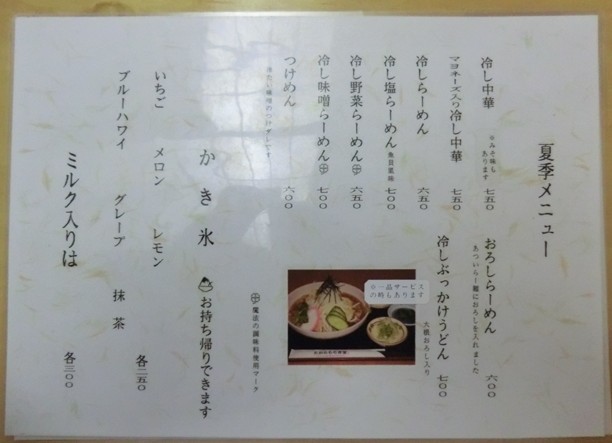 夏季メニュー
冷し中華 七五〇
※みそ味もあります
マヨネーズ入り冷し中華 七五〇
冷しらーめん 六五〇
冷し塩らーめん 魚貝風味 七〇〇
冷し野菜らーめん 六五〇
冷し味噌らーめん 七〇〇
つけめん 六〇〇
おろしらーめん 六〇〇
あついらー麺におろしを入れました
冷しぶっかけうどん 七〇〇
大根おろし入り
※一品サービスの時もあります
魔法の調味料使用マーク
かき氷 お持ち帰りできます
いちご メロン レモン
ブルーハワイ グレープ 抹茶 各二五〇
ミルク入りは 各三〇〇